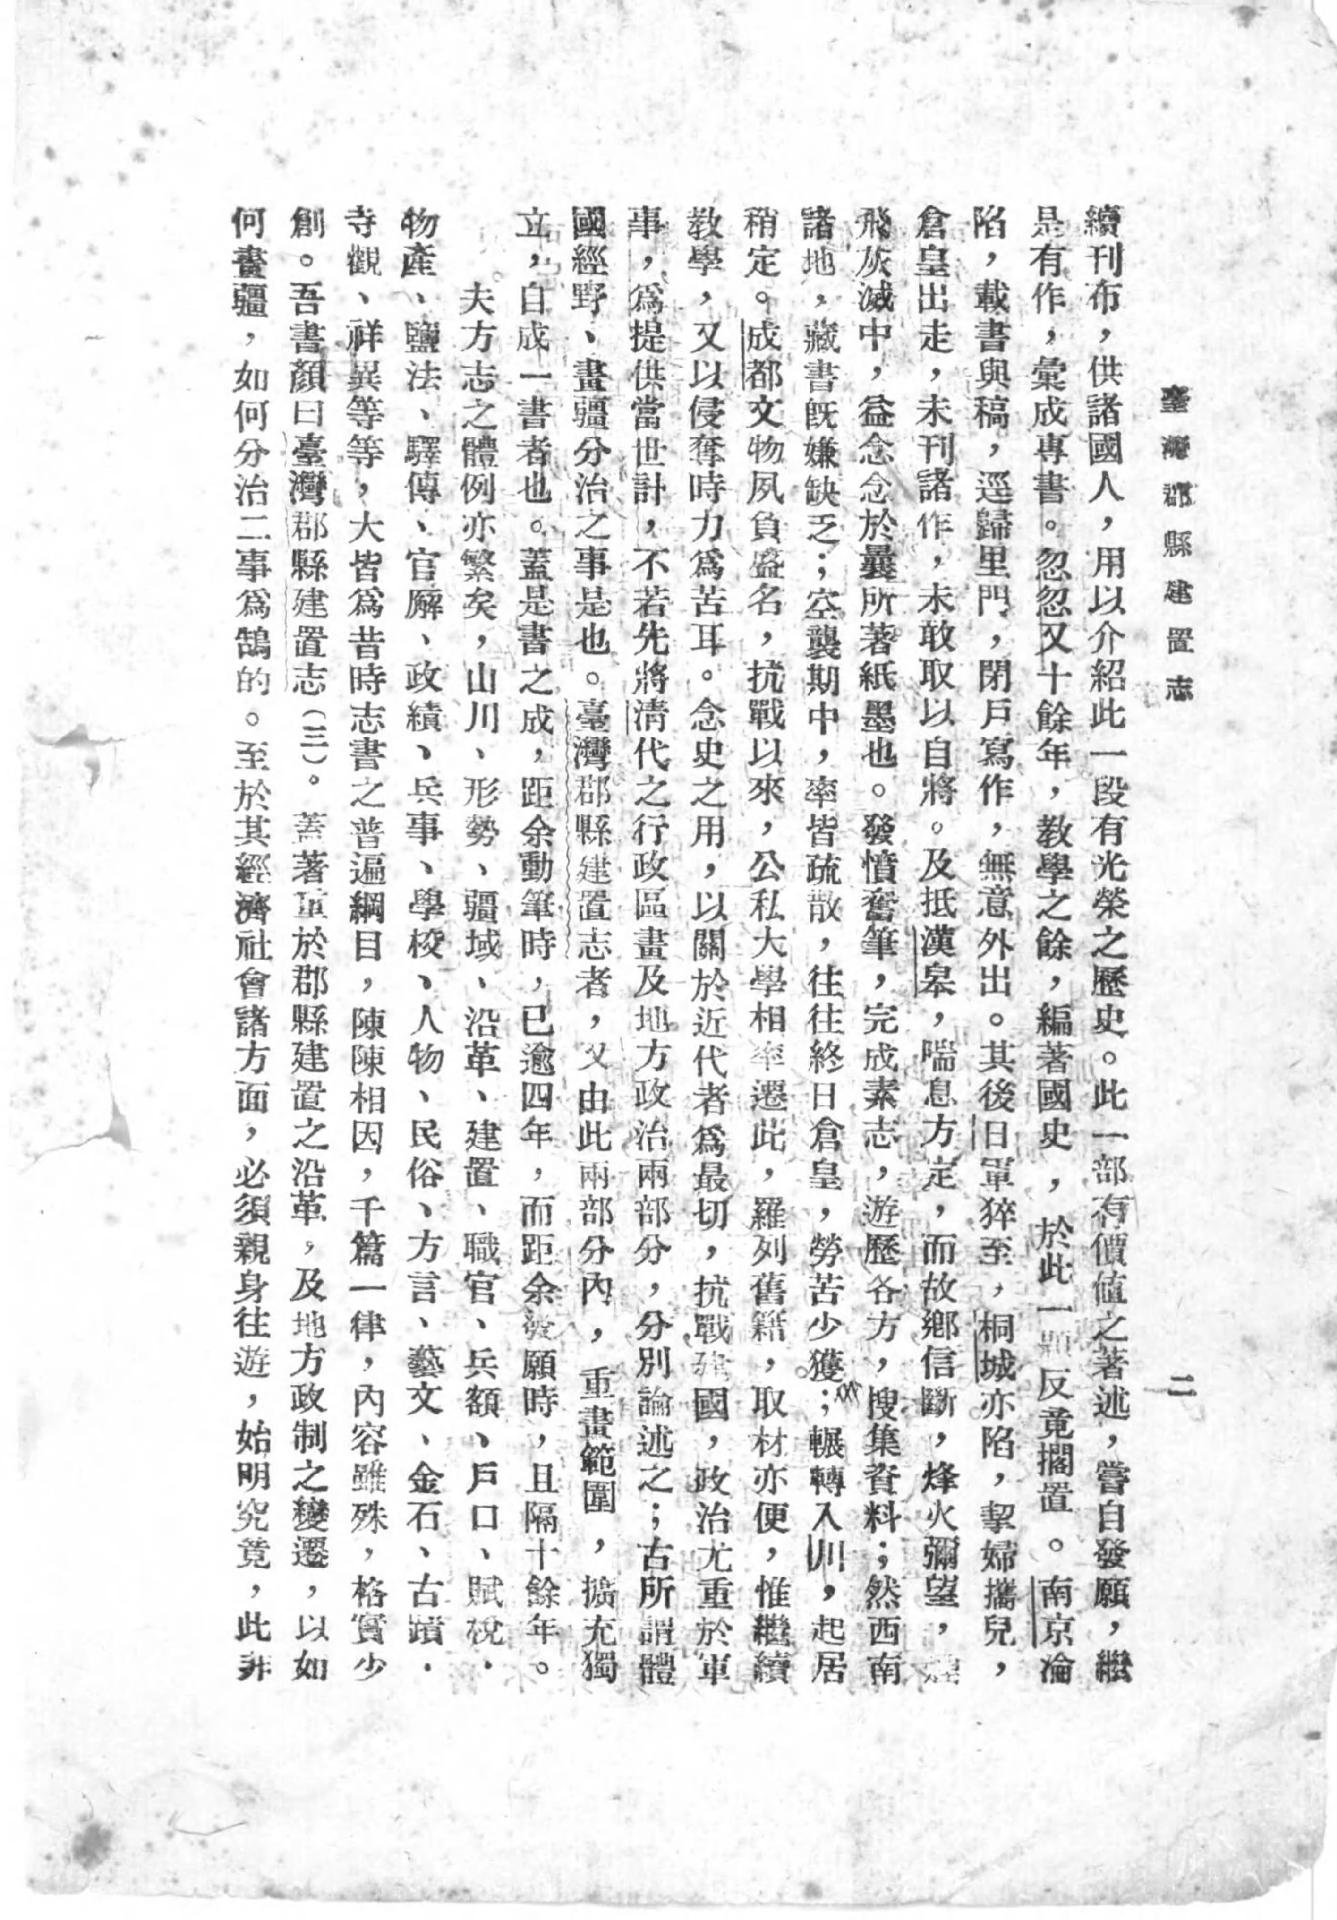 臺灣郡縣建置志
二
續刊布，供諸國人，用以介紹此一段有光榮之歷史。此一部有價值之著述，嘗自發願，繼
是有作，彙成專書。忽忽又十餘年，教學之餘，編著國史，於此一題反竟擱置。南京淪
陷，載書與稿，逕歸里門，閉戶寫作，無意外出。其後日軍猝至，桐城亦陷，挈婦攜兒，
倉皇出走，未刊諸作，未敢取以自將。及抵漢皋，喘息方定，而故鄉信斷，烽火彌望，煙
飛灰滅中，益念念於曩所著紙墨也。發憤奮筆，完成素志，遊歷各方，搜集資料；然西南
諸地，藏書既嫌缺乏；空襲期中，率皆疏散，往往終日倉皇，勞苦少獲；輾轉入川，起居
稍定。成都文物夙負盛名，抗戰以來，公私大學相率遷此，羅列舊籍，取材亦便，惟繼續
教學，又以侵奪時力為苦耳。念史之用，以關於近代者為最切，抗戰建國，政治尤重於軍
事，為提供當世計，不若先將清代之行政區畫及地方政治兩部分，分別論述之；古所謂體
國經野、畫疆分治之事是也。臺灣郡縣建置志者，又由此兩部分內，重畫範圍，擴充獨
立，自成一書者也。蓋是書之成，距余動筆時，已逾四年，而距余發願時，且隔十餘年。
夫方志之體例亦繁矣，山川、形勢、疆域、沿革、建置、職官、兵額、戶口、賦稅、
物產、鹽法、驛傳、官廨、政績、兵事、學校、人物、民俗、方言、藝文、金石、古蹟、
寺觀、祥異等等，大皆為昔時志書之普遍綱目，陳陳相因，千篇一律，內容雖殊，格實少
創。吾書顏曰臺灣郡縣建置志（三）。蓋著重於郡縣建置之沿革，及地方政制之變遷，以如
何畫疆，如何分治二事為鵠的。至於其經濟社會諸方面，必須親身往遊，始明究竟，此非